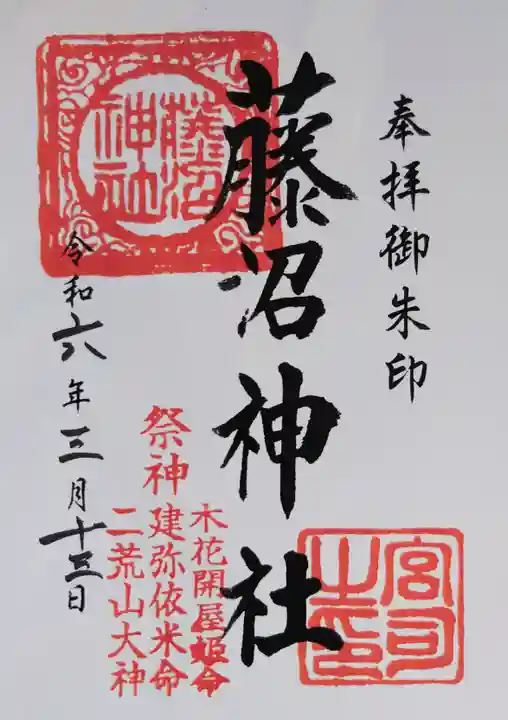 奉拝御朱印
藤沼神社
藤沼
神社
宮司
之印
木花開屋姫命
祭神建弥依米命
二荒山大神
令和六年三月十三日